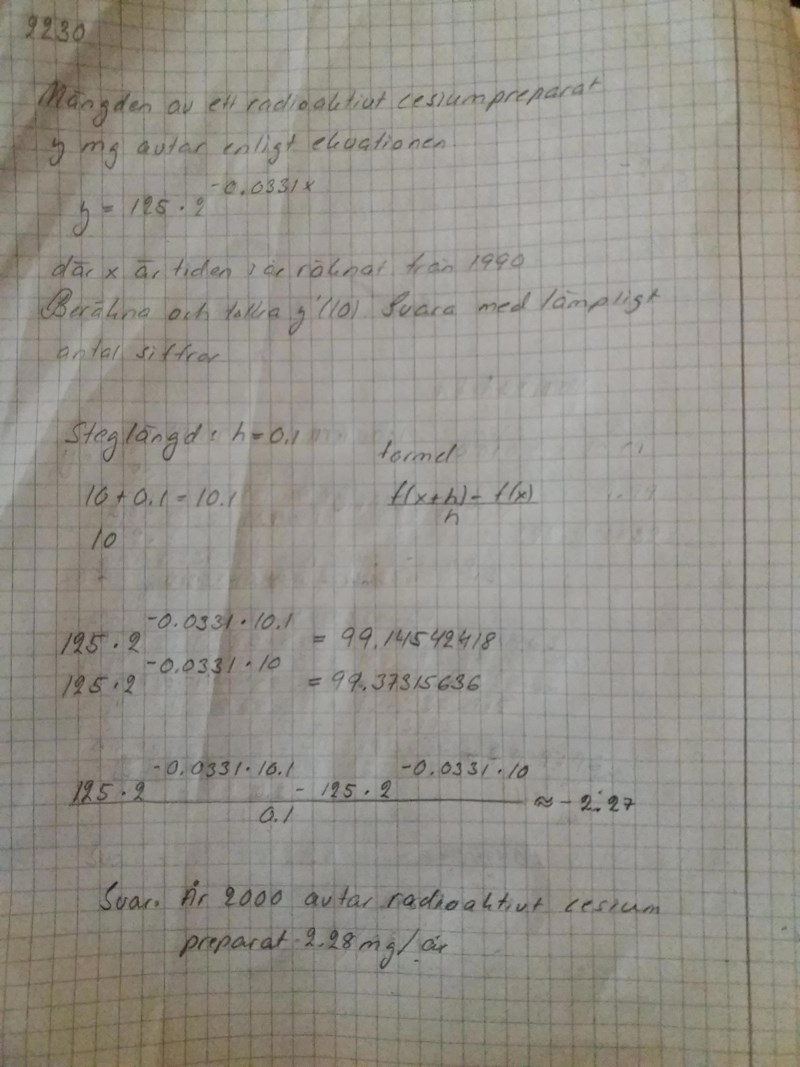 2230
Mängden av ett radioaktivt cesiumpreparat
y mg avtar enligt ekvationen
y = 125 · 2^-0.0331x
där x är tiden i år räknat från 1990
Beräkna och tolka y'(10) Svara med lämpligt
antal siffror
Steglängd: h = 0.1
formel
10 + 0.1 = 10.1
f(x+h) - f(x) / h
10
125 · 2^-0.0331 · 10.1 = 99.14542418
125 · 2^-0.0331 · 10 = 99.37315636
125 · 2^-0.0331 · 10.1 - 125 · 2^-0.0331 · 10 / 0.1 ≈ - 2.27
Svar. År 2000 avtar radioaktivt cesium
preparat 2.28 mg/år